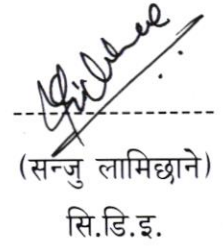 (सन्जु लामिछाने)
सि.डि.इ.